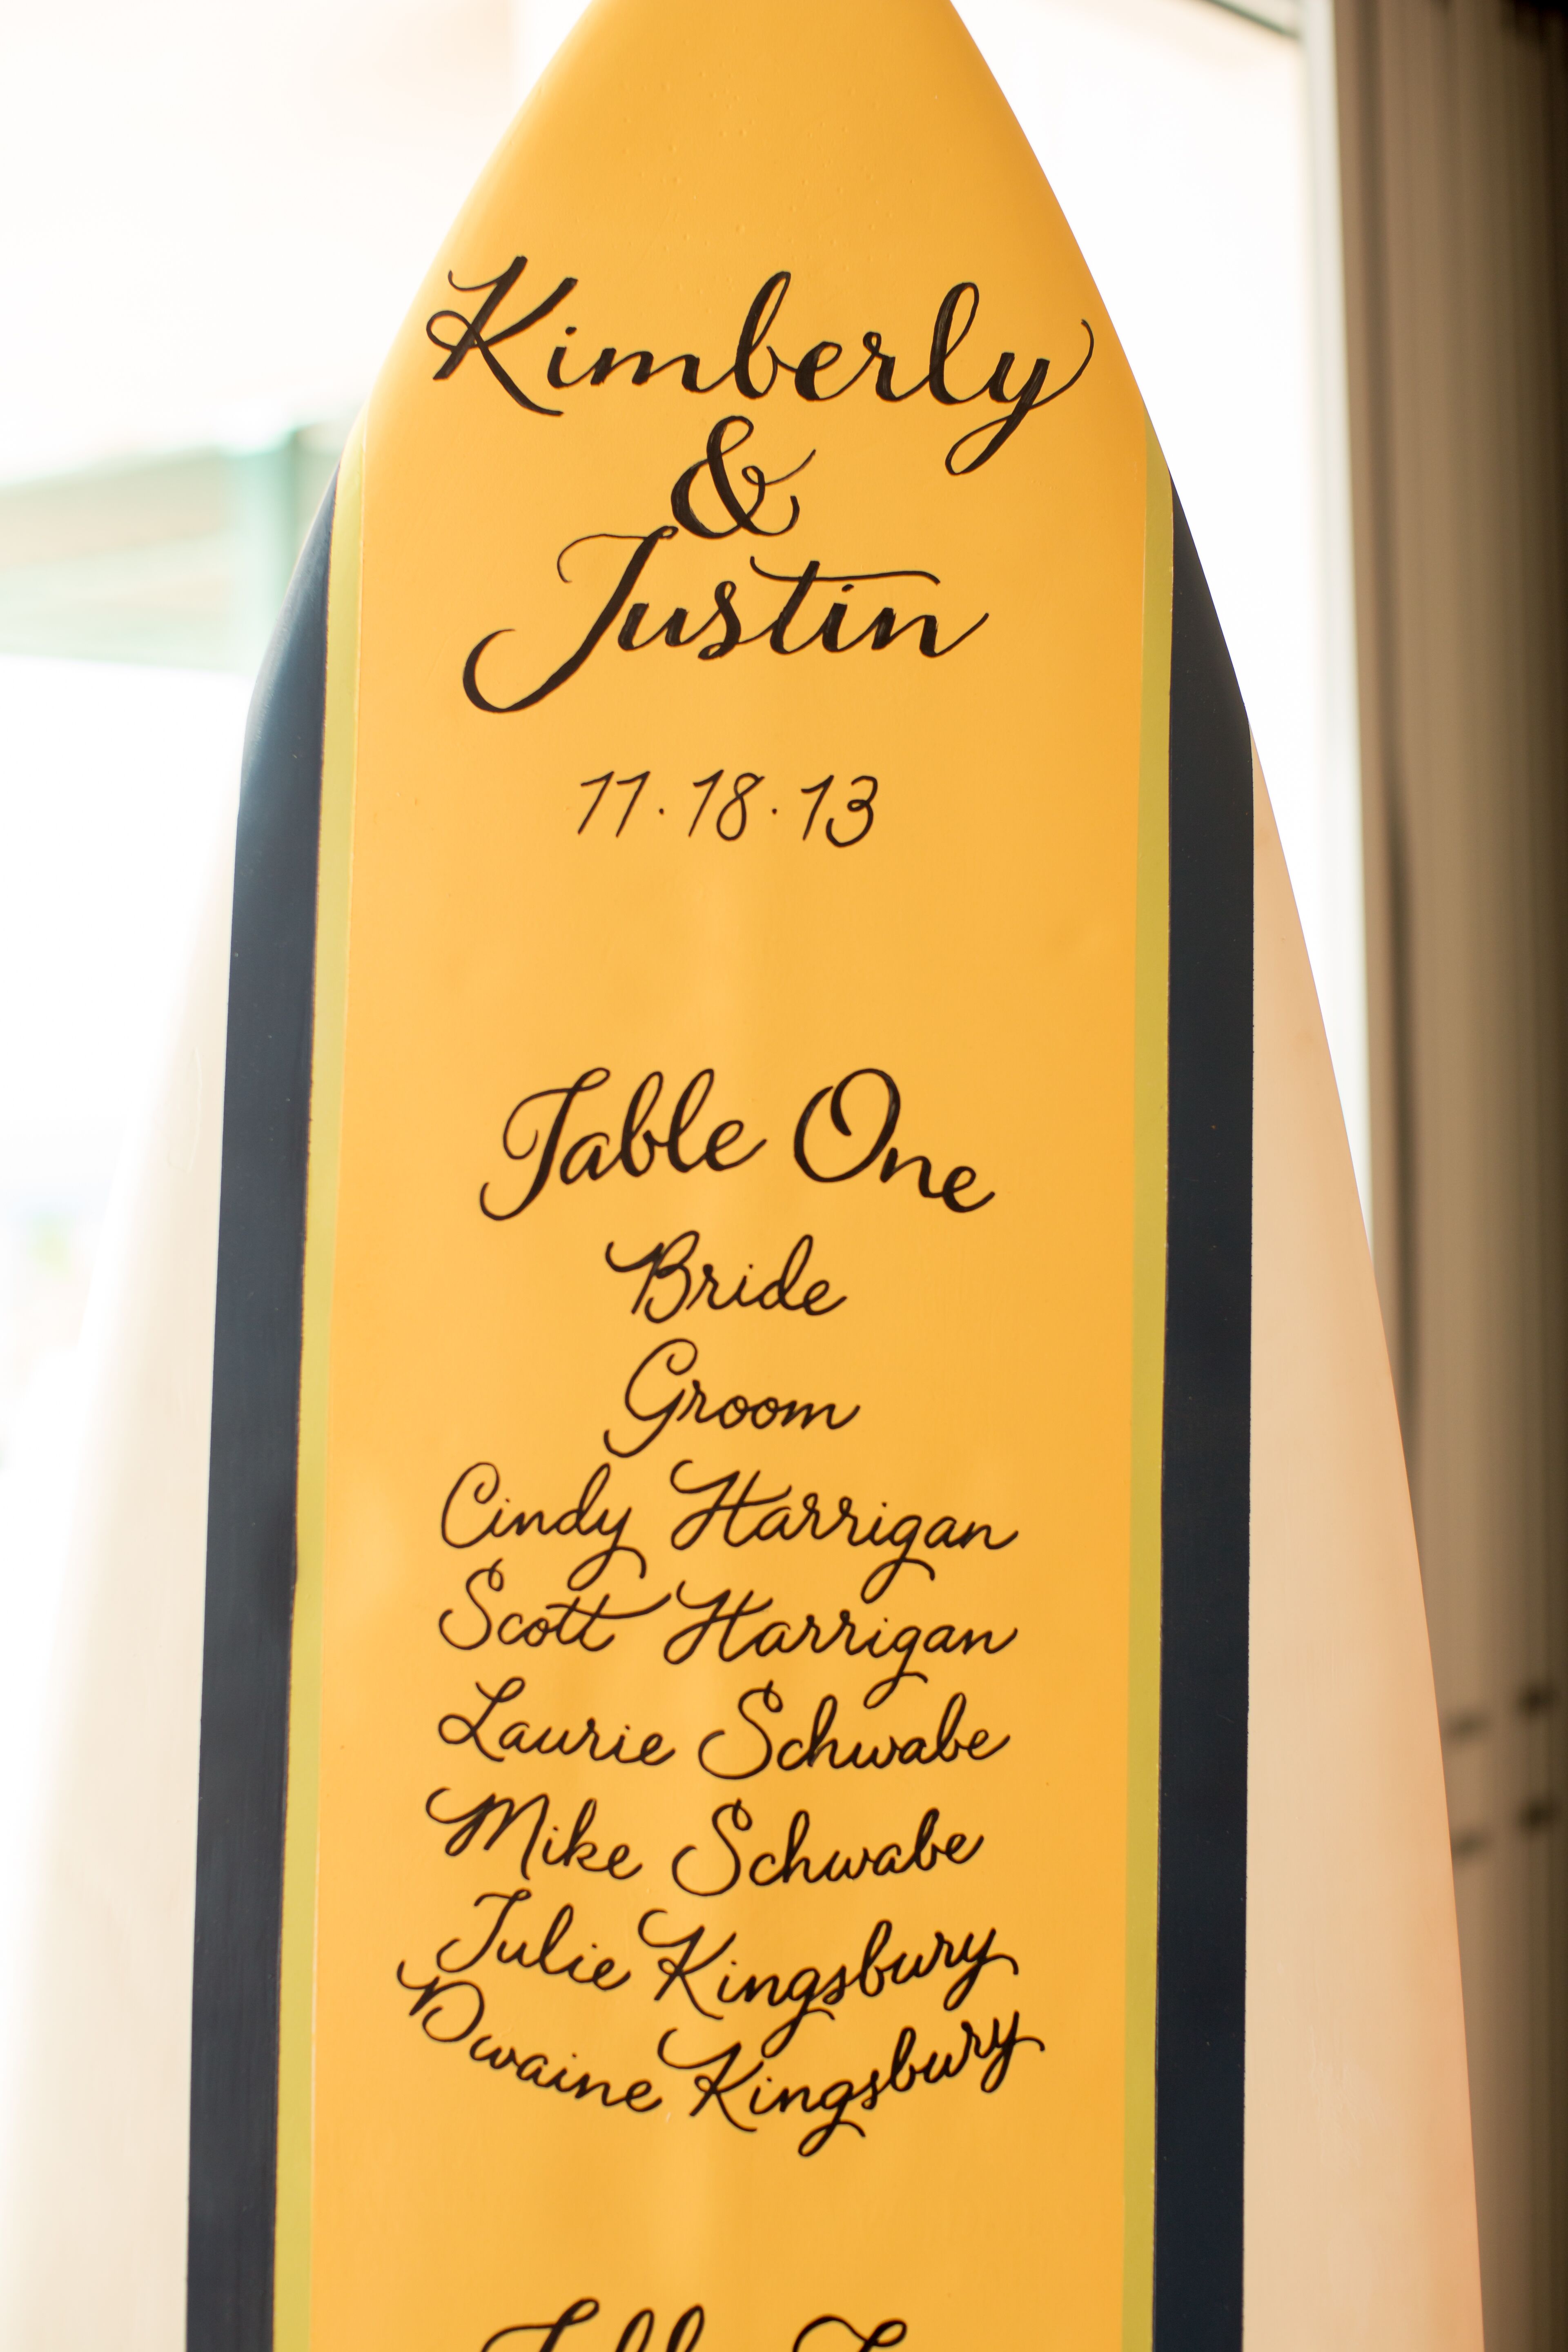 Kimberly
&
Justin
11·18·13
Table One
Bride
Groom
Cindy Harrigan
Scott Harrigan
Laurie Schwabe
Mike Schwabe
Julie Kingsbury
Dwaine Kingsbury